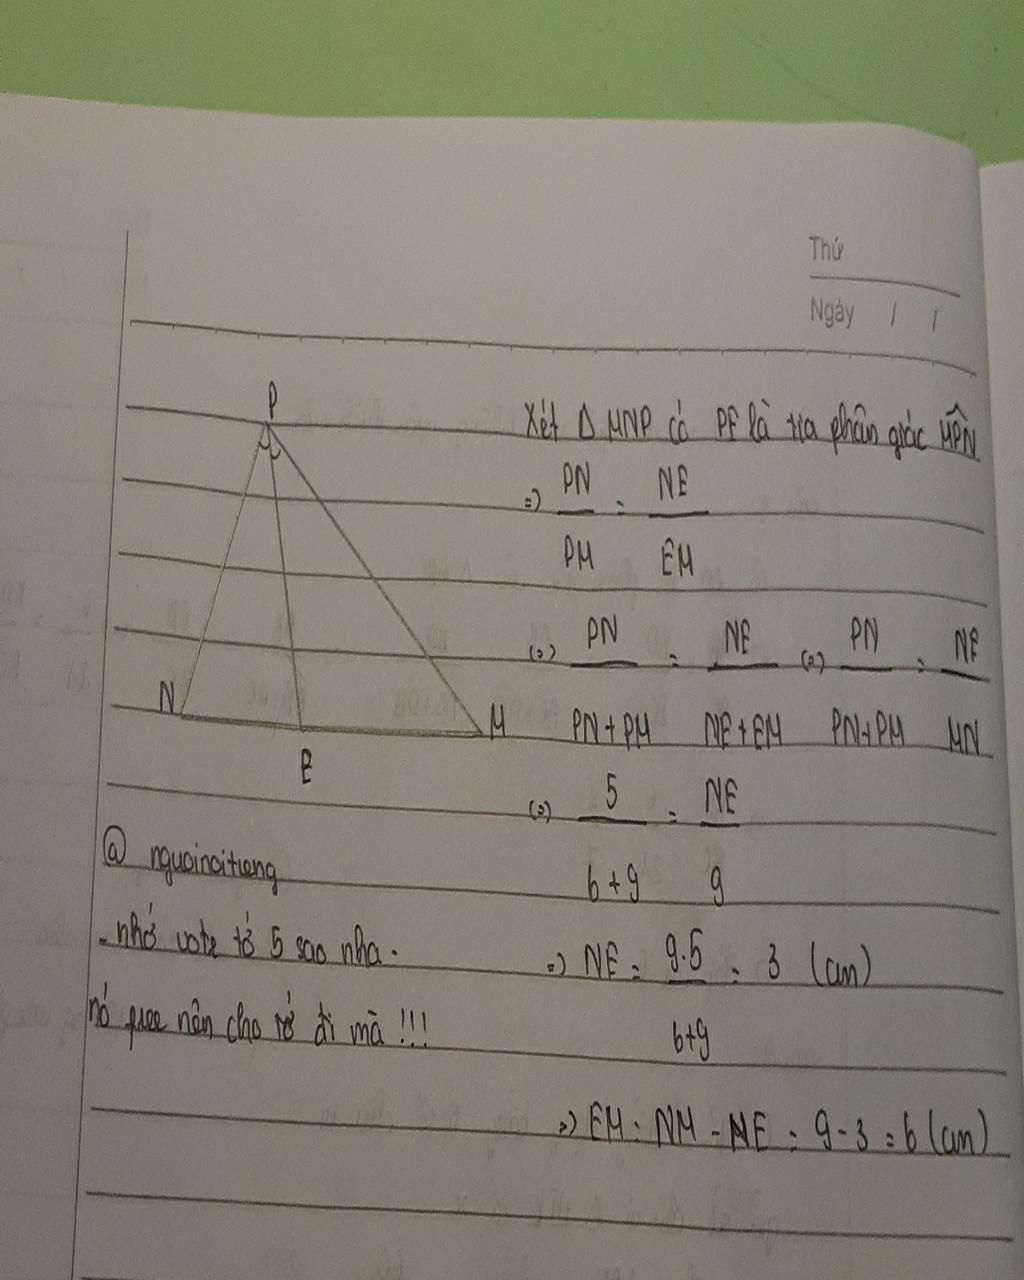 Thứ
Ngày / /
P
N
E
M
Xét Δ MNP có PE là tia phân giác MPN
=> PN/PM = NE/EM
(=) PN/PN+PM = NE/NE+EM (=) PN/PN+PM = NE/MN
(=) 5/6+9 = NE/9
=> NE = 9.5/6+9 = 3 (cm)
=> EM = NM - NE = 9-3 = 6 (cm)
@ nguoinoitieng
- nhớ vote tớ 5 sao nha.
nó free nên cho tớ đi mà !!!